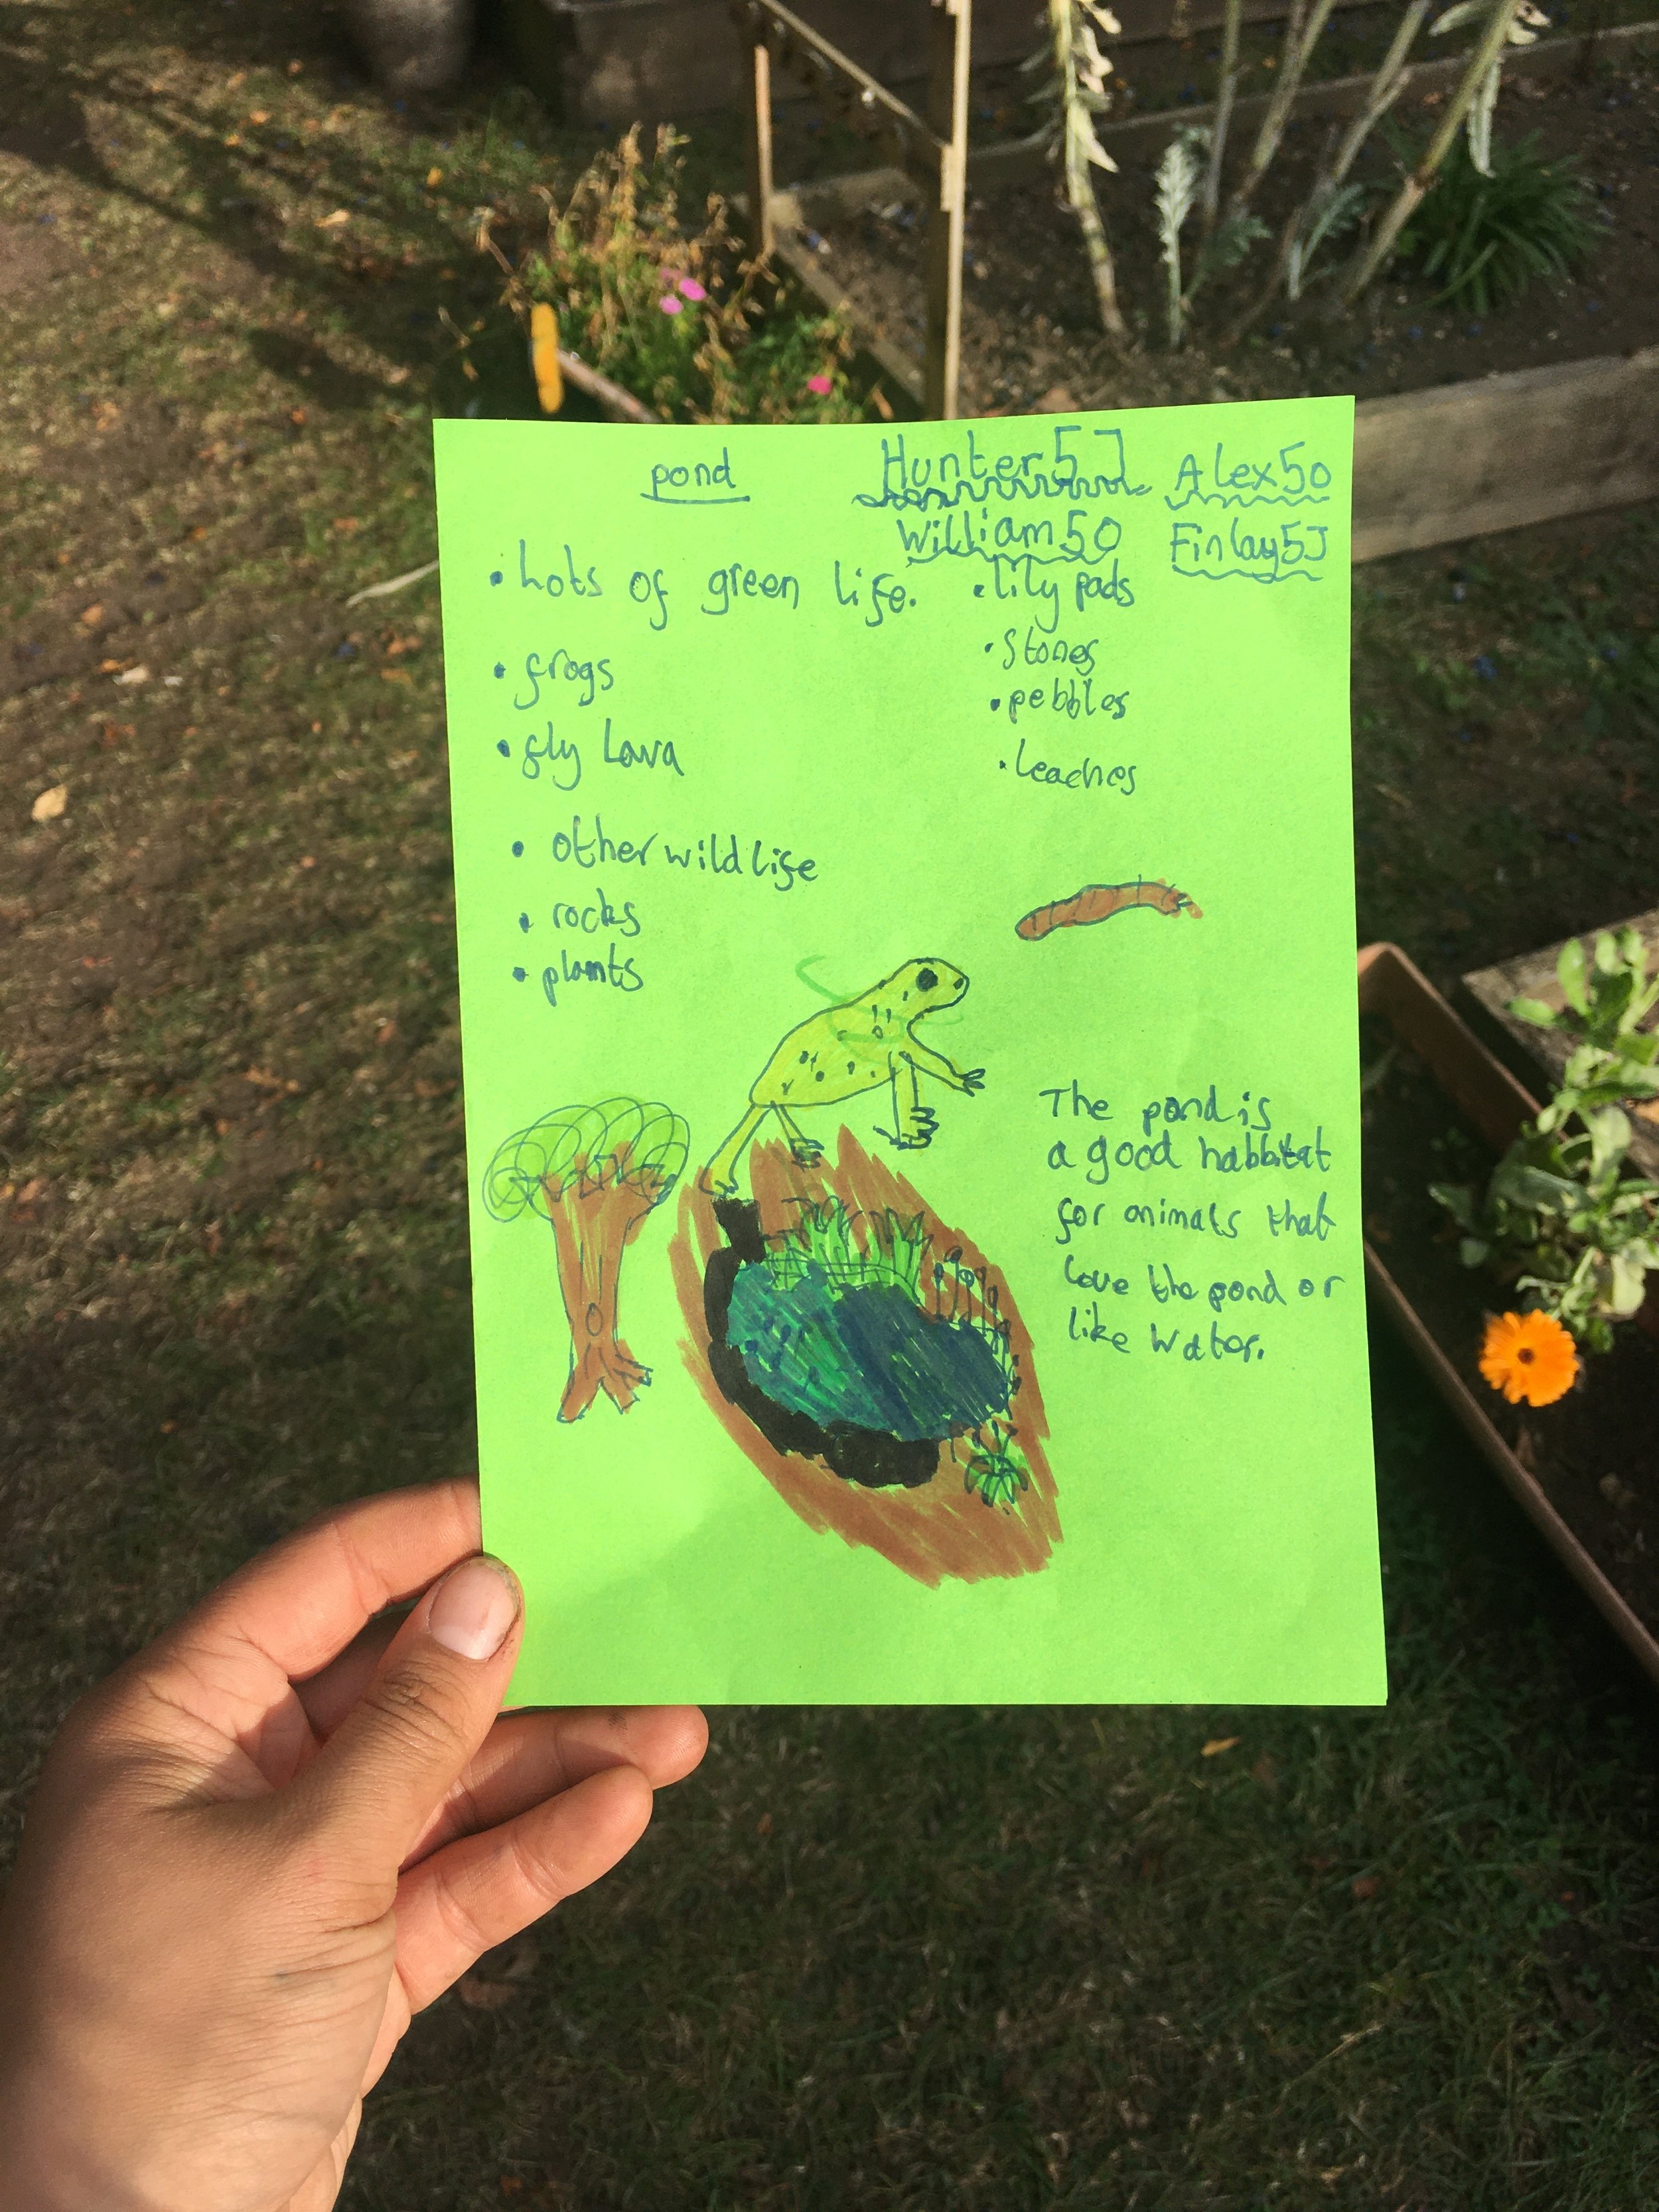 pond
Hunter 5J
Alex 5O
William 5O
Finlay 5J
• Lots of green life.
• frogs
• fly Lava
• other wild life
• rocks
• plants
• lily pads
• Stones
• pebbles
• leaches
The pond is
a good habbitat
for animals that
love the pond or
like water.